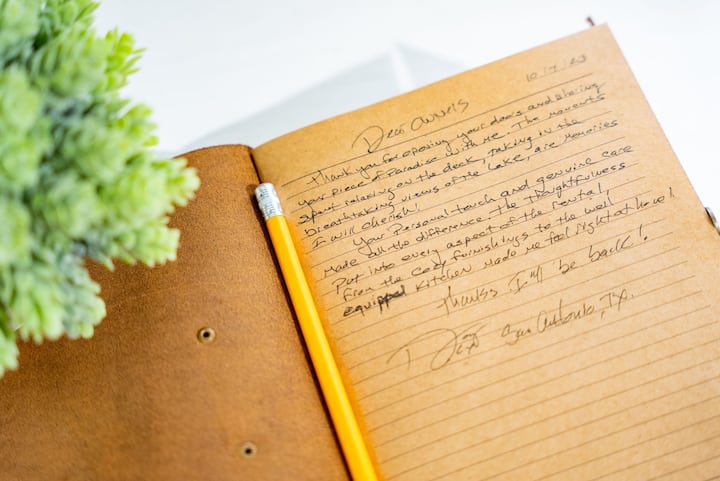 10/7/23
Dear Owners
Thank you for opening your doors and sharing
your piece of Paradise with me. The moments
spent relaxing on the deck, taking in the
breathtaking views of the Lake, are memories
I will cherish!
Your Personal touch and genuine care
made all the difference. The thoughtfulness
Put into every aspect of the rental,
from the cozy furnishings to the well
equipped kitchen made me feel right at home!
Thanks I'll be back!
San Antonio, TX.